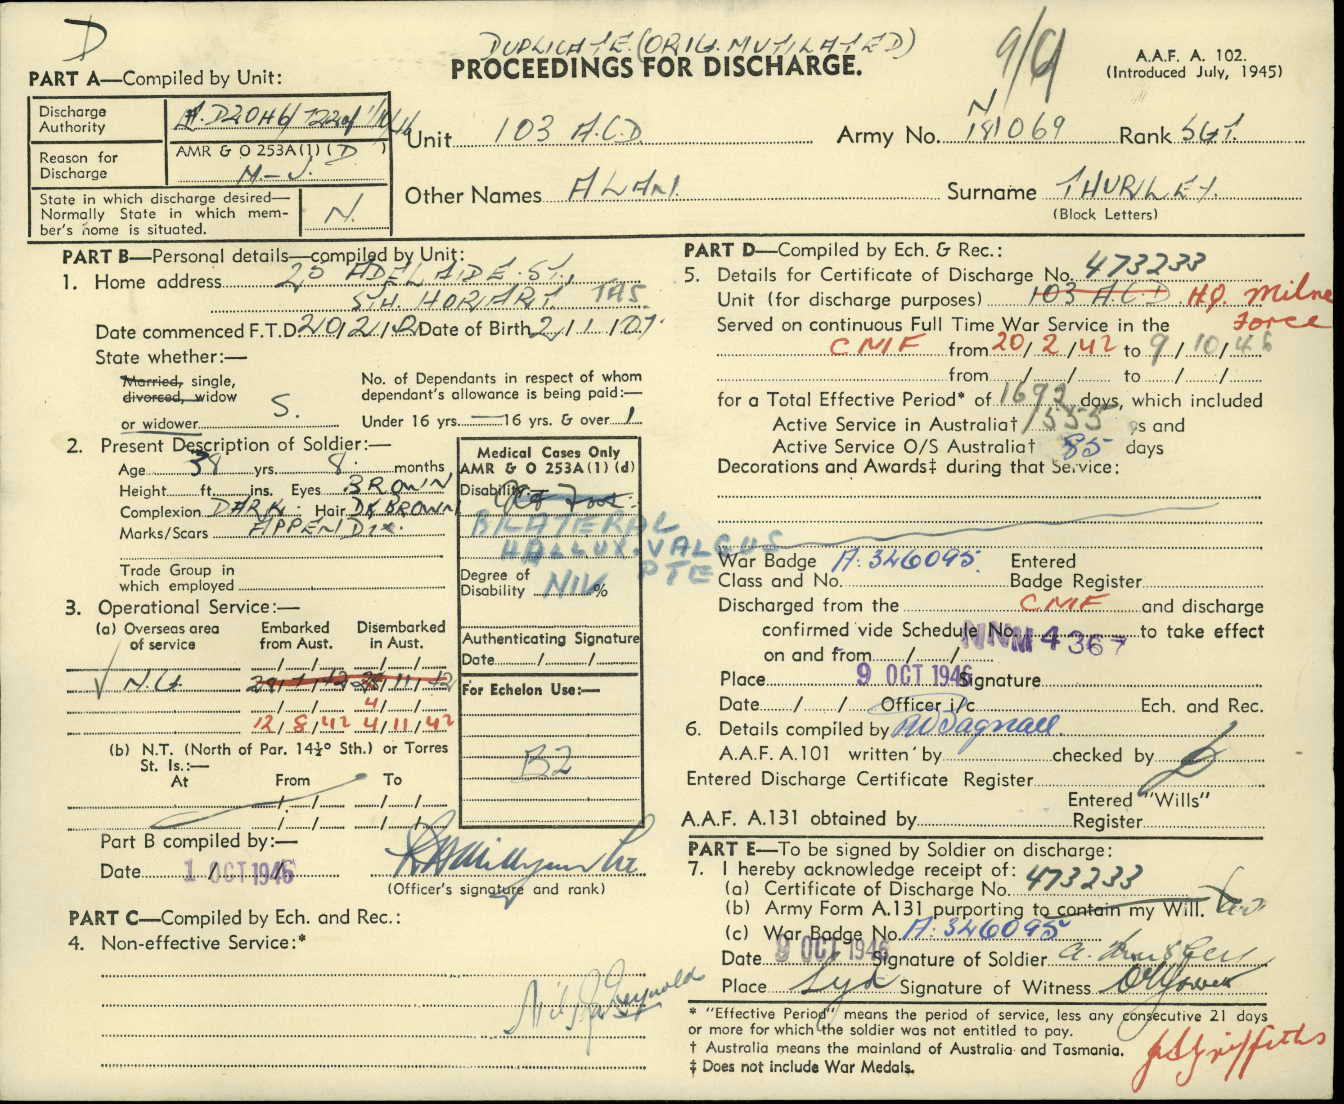 D
DUPLICATE. (ORIG. MUTILATED)
PROCEEDINGS FOR DISCHARGE.
9/9
A.A.F. A. 102.
(Introduced July, 1945)
PART A—Compiled by Unit:
Discharge Authority
AMR & O 253A(1) ( D )
Reason for Discharge
State in which discharge desired—
Normally State in which mem-
ber's home is situated.
N.
Unit 103 A.C.D.
Army No. N 181069 Rank SGT.
Other Names ALAN. Surname THURLEY.
(Block Letters)
PART B—Personal details—compiled by Unit:
1. Home address 25 ADELAIDE ST.,
STH. HOBART. TAS.
Date commenced F.T.D. 20/2/42 Date of Birth 2/1/07.
State whether:—
Married, single,
divorced, widow
or widower S.
No. of Dependants in respect of whom
dependant's allowance is being paid:—
Under 16 yrs. — 16 yrs. & over 1
2. Present Description of Soldier:—
Age 38 yrs. 8 months
Height ft. ins. Eyes BROWN
Complexion DARK. Hair DK BROWN
Marks/Scars APPENDIX.
Trade Group in
which employed
Medical Cases Only
AMR & O 253A(1)(d)
Disability:—
BILATERAL
HALLUX. VALGUS
PTE
Degree of
Disability NIL %
Authenticating Signature
Date / /
For Echelon Use:—
B2
3. Operational Service:—
(a) Overseas area of service
Embarked from Aust.
Disembarked in Aust.
N.G.
4
12/8/42 4/11/42
(b) N.T. (North of Par. 14½° Sth.) or Torres
St. Is.:—
At From To
Part B compiled by:—
Date 1 OCT 1946
(Officer's signature and rank)
PART C—Compiled by Ech. and Rec.:
4. Non-effective Service:*
Nil
Reynolds
PART D—Compiled by Ech. & Rec.:
5. Details for Certificate of Discharge No. 473233
Unit (for discharge purposes) 103 A.C.D HQ. Milne
Force
Served on continuous Full Time War Service in the
CMF from 20/2/42 to 9/10/46
from / / to / /
for a Total Effective Period* of 1692 days, which included
Active Service in Australia† 1555 ys and
Active Service O/S Australia† 85 days
Decorations and Awards‡ during that Service:
War Badge A. 346095. Entered
Class and No. Badge Register
Discharged from the CMF and discharge
confirmed vide Schedule No. NNM 4367 to take effect
on and from / /
Place 9 OCT 1946 Signature
Date / / Officer i/c Ech. and Rec.
6. Details compiled by
A.A.F. A.101 written by checked by
Entered Discharge Certificate Register
Entered "Wills"
A.A.F. A.131 obtained by Register
PART E—To be signed by Soldier on discharge:
7. I hereby acknowledge receipt of:
(a) Certificate of Discharge No. 473233
(b) Army Form A.131 purporting to contain my Will.
(c) War Badge No. A. 346095
Date 9 OCT 1946 Signature of Soldier
Place Syd Signature of Witness
* "Effective Period" means the period of service, less any consecutive 21 days
or more for which the soldier was not entitled to pay.
† Australia means the mainland of Australia and Tasmania.
‡ Does not include War Medals.
Griffiths